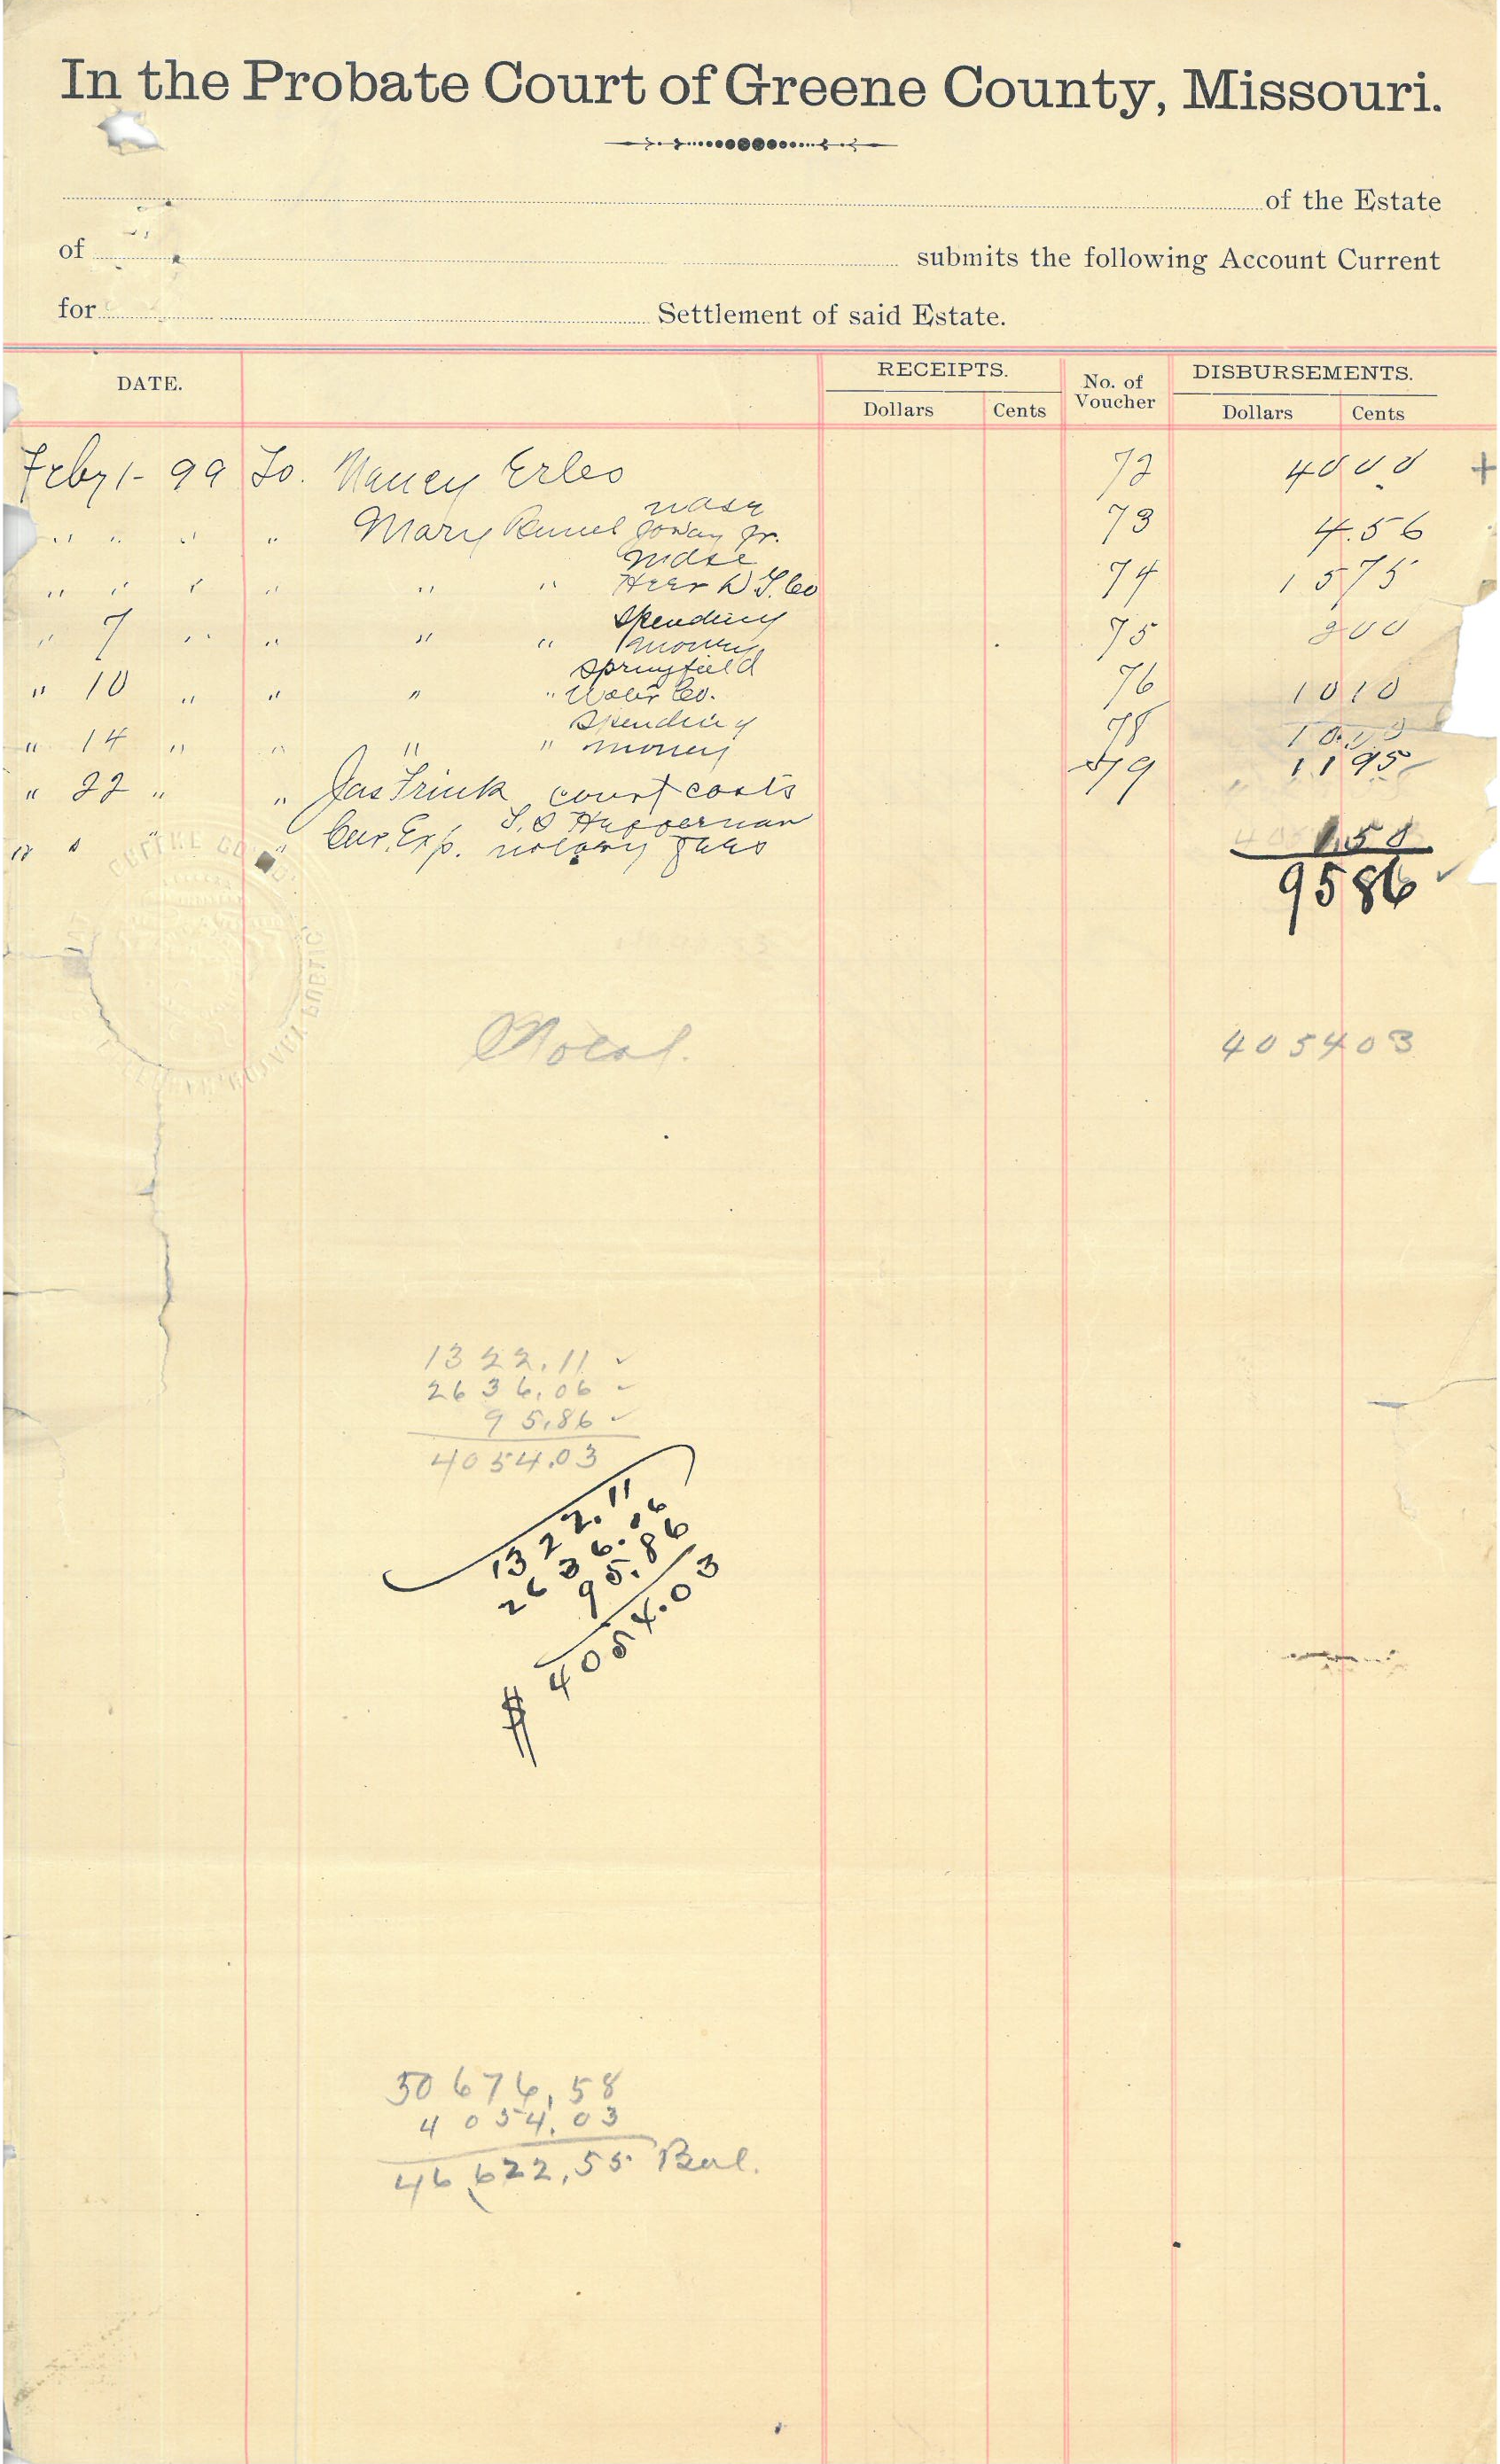 In the Probate Court of Greene County, Missouri.
of the Estate
of submits the following Account Current
for Settlement of said Estate.
DATE. RECEIPTS. No. of Voucher DISBURSEMENTS.
Dollars Cents Dollars Cents
Feby 1 - 99 To. Nancy Erles 72 40 00 +
" " " " Mary mdse 73 4.56
" " " " " " mdse Heer D G. Co 74 15 75
" 7 " " " " Spending money 75 2 00
" 10 " " " " Springfield Water Co. 76 10 10
" 14 " " " " Spending money 78 10.00
" 22 " " Jas Frink court costs 79 11 95
" " " " Cur. Exp. notary fees 1.50
95 86 ✓
Total. 4054 03
1322.11 ✓
2636.06 ✓
95.86 ✓
4054.03
1322.11
2636.06
95.86
$ 4054.03
50676.58
4054.03
46,622.55 Bal.